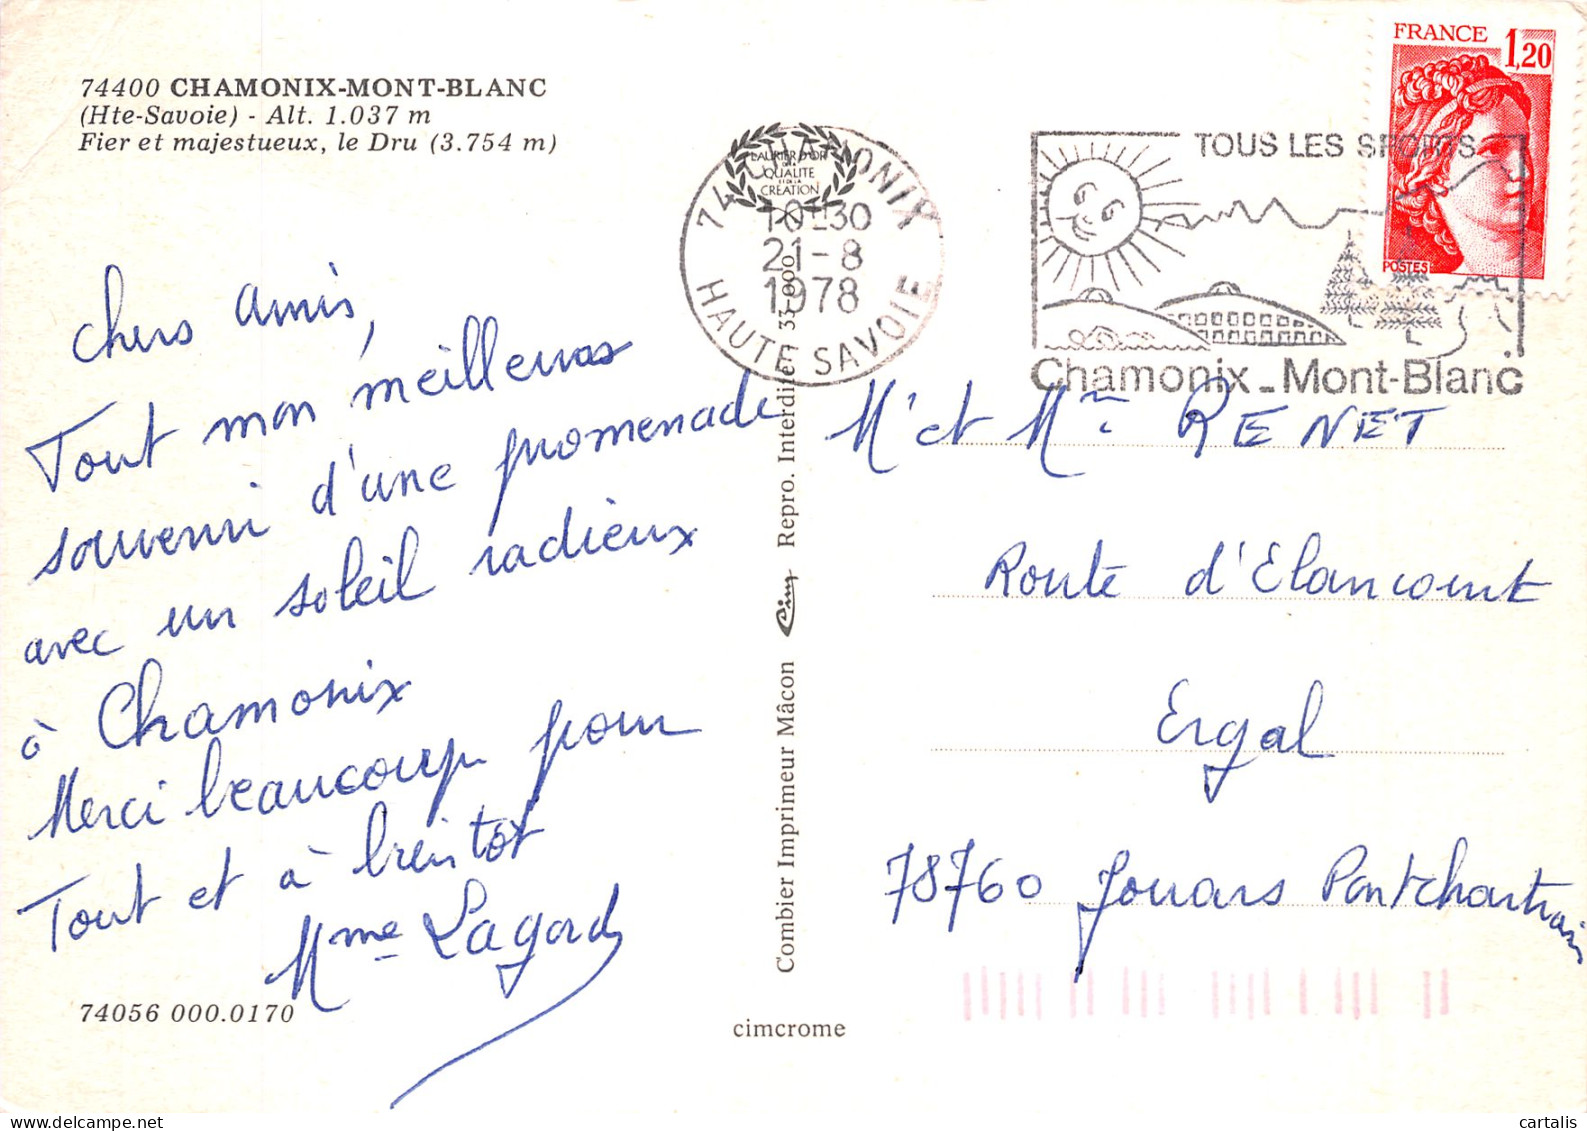 74400 CHAMONIX-MONT-BLANC
(Hte-Savoie) - Alt. 1.037 m
Fier et majestueux, le Dru (3.754 m)
Chers Amis,
Tout mon meilleur
souvenir d'une promenade
avec un soleil radieux
à Chamonix
Merci beaucoup pour
Tout et à bientôt
Mme Lagarde
74056 000.0170
LAURIER D'OR
DE LA
QUALITE
ET DE LA
CREATION
74 CHAMONIX
10H30
21-8
1978
HAUTE SAVOIE
Combier Imprimeur Mâcon Cim Repro. Interdite 33.000
cimcrome
TOUS LES SPORTS
Chamonix_Mont-Blanc
FRANCE 1,20
POSTES
Mr et Mme RENET
Route d'Elancourt
Ergal
78760 Jouars Pontchartrain
cartalis